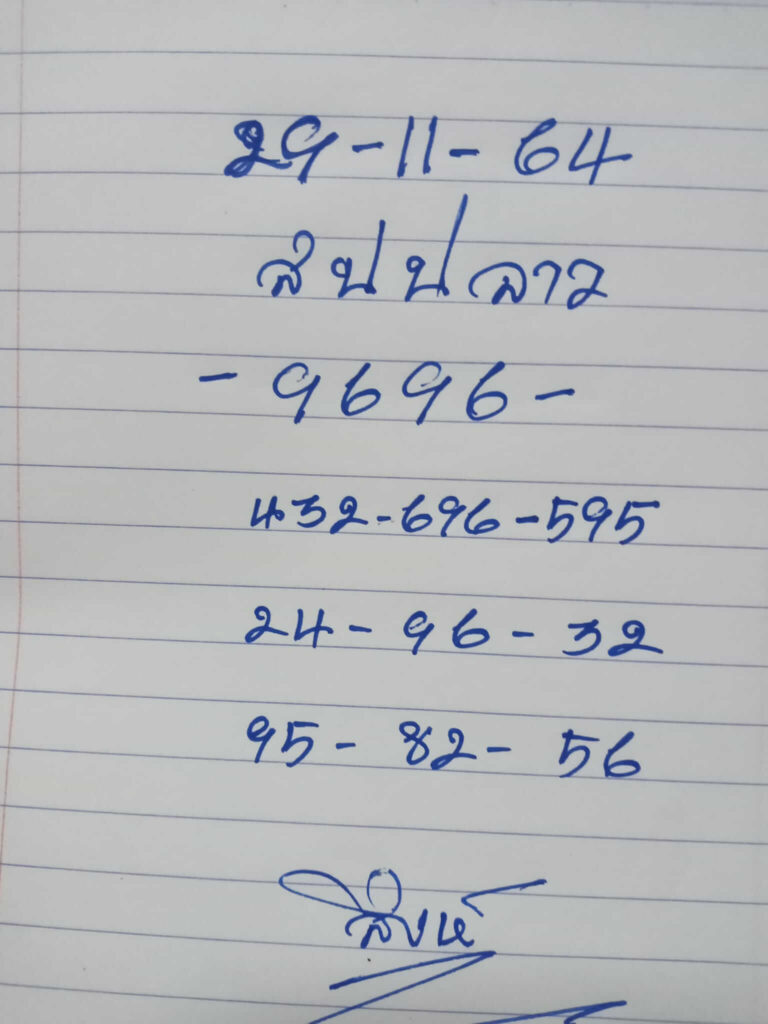 29-11-64
สปปลาว
- 9696 -
432-696-595
24 - 96 - 32
95 - 82 - 56
สิงห์